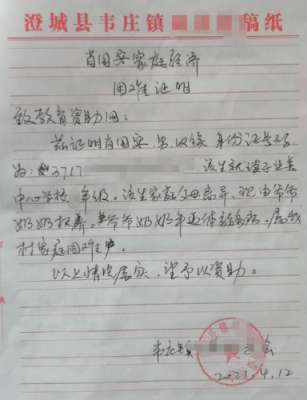 澄城县韦庄镇 稿纸
肖国安家庭经济
困难证明
致教育资助田:
兹证明肖国安 男 汉族 身份证号码
为: 2717 该生就读于
中心学校 年级,该生家庭父母离异,现由爷爷
奶奶 养。爷爷奶奶年迈体弱多病。属我
村家庭困难户。
以上情况属实,望予以资助。
韦庄镇 会
2021.4.12